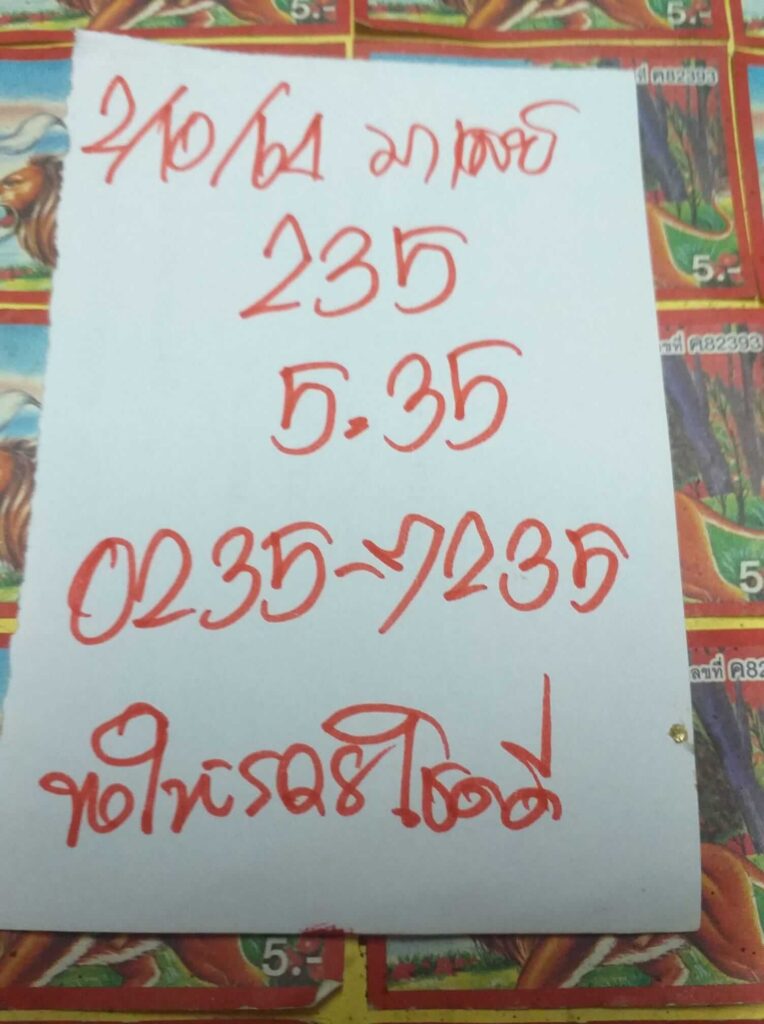 5.-
5.-
ที่ ค82393
2/10/64 มาเลย์
235
5.-
5.35
ลขที่ ค82393
0235-7235
5
ลขที่ ค82
ขอให้รวยโชคดี
5.-